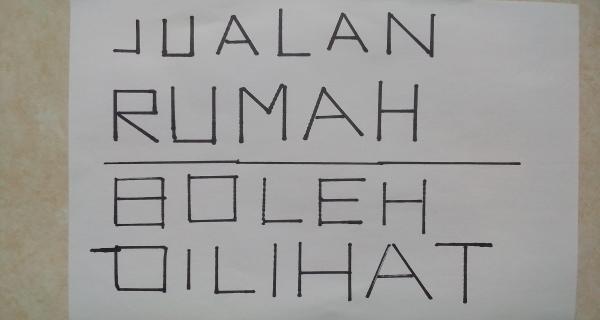 JUALAN
RUMAH
BOLEH
DILIHAT